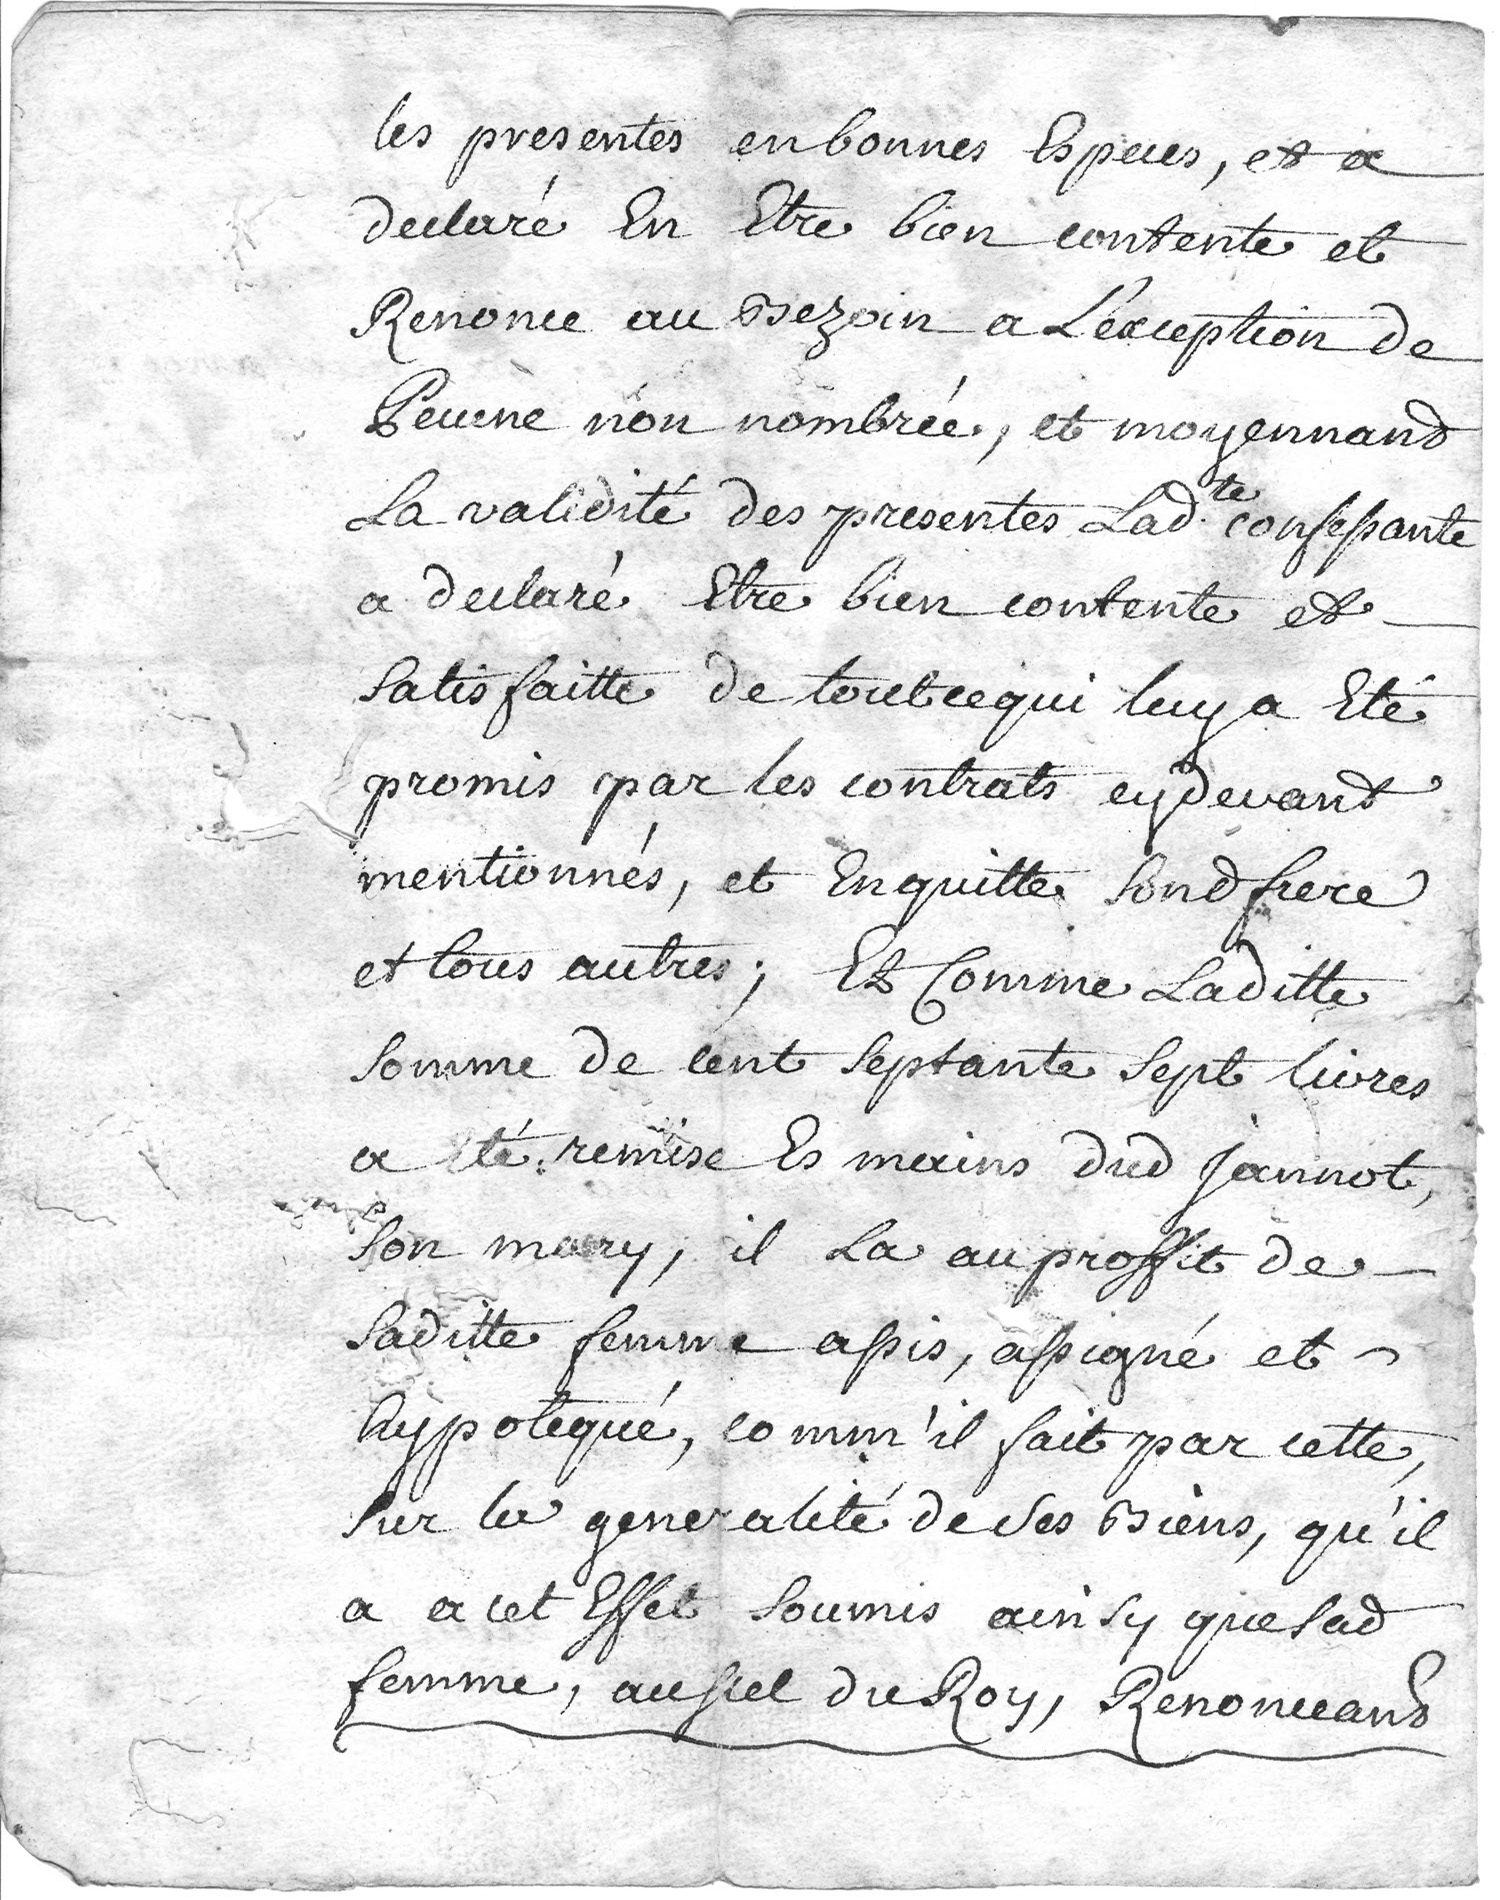 les presentes en bonnes Especes, et a
declaré En Etre bien contente et
Renonce au Bezoin a L'éxception de
Pecune non nombrée, et moyennant
La validité des presentes Lad.te confessante
a declaré Etre bien contente et
satisfaitte de tout ce qui luy a Eté
promis par les contrats cy devant
mentionnés, et En quitte Sond frere
et tous autres; Et Comme Laditte
somme de cent septante sept livres
a Eté remise Es mains dud jannot,
son mary, il La au proffit de
saditte femme assis, assigné et
hypotequé, comm'il fait par cette,
sur la generalité de ses Biens, qu'il
a a cet Effet soumis ainsy que sad
femme, au scel du Roy, Renonceant